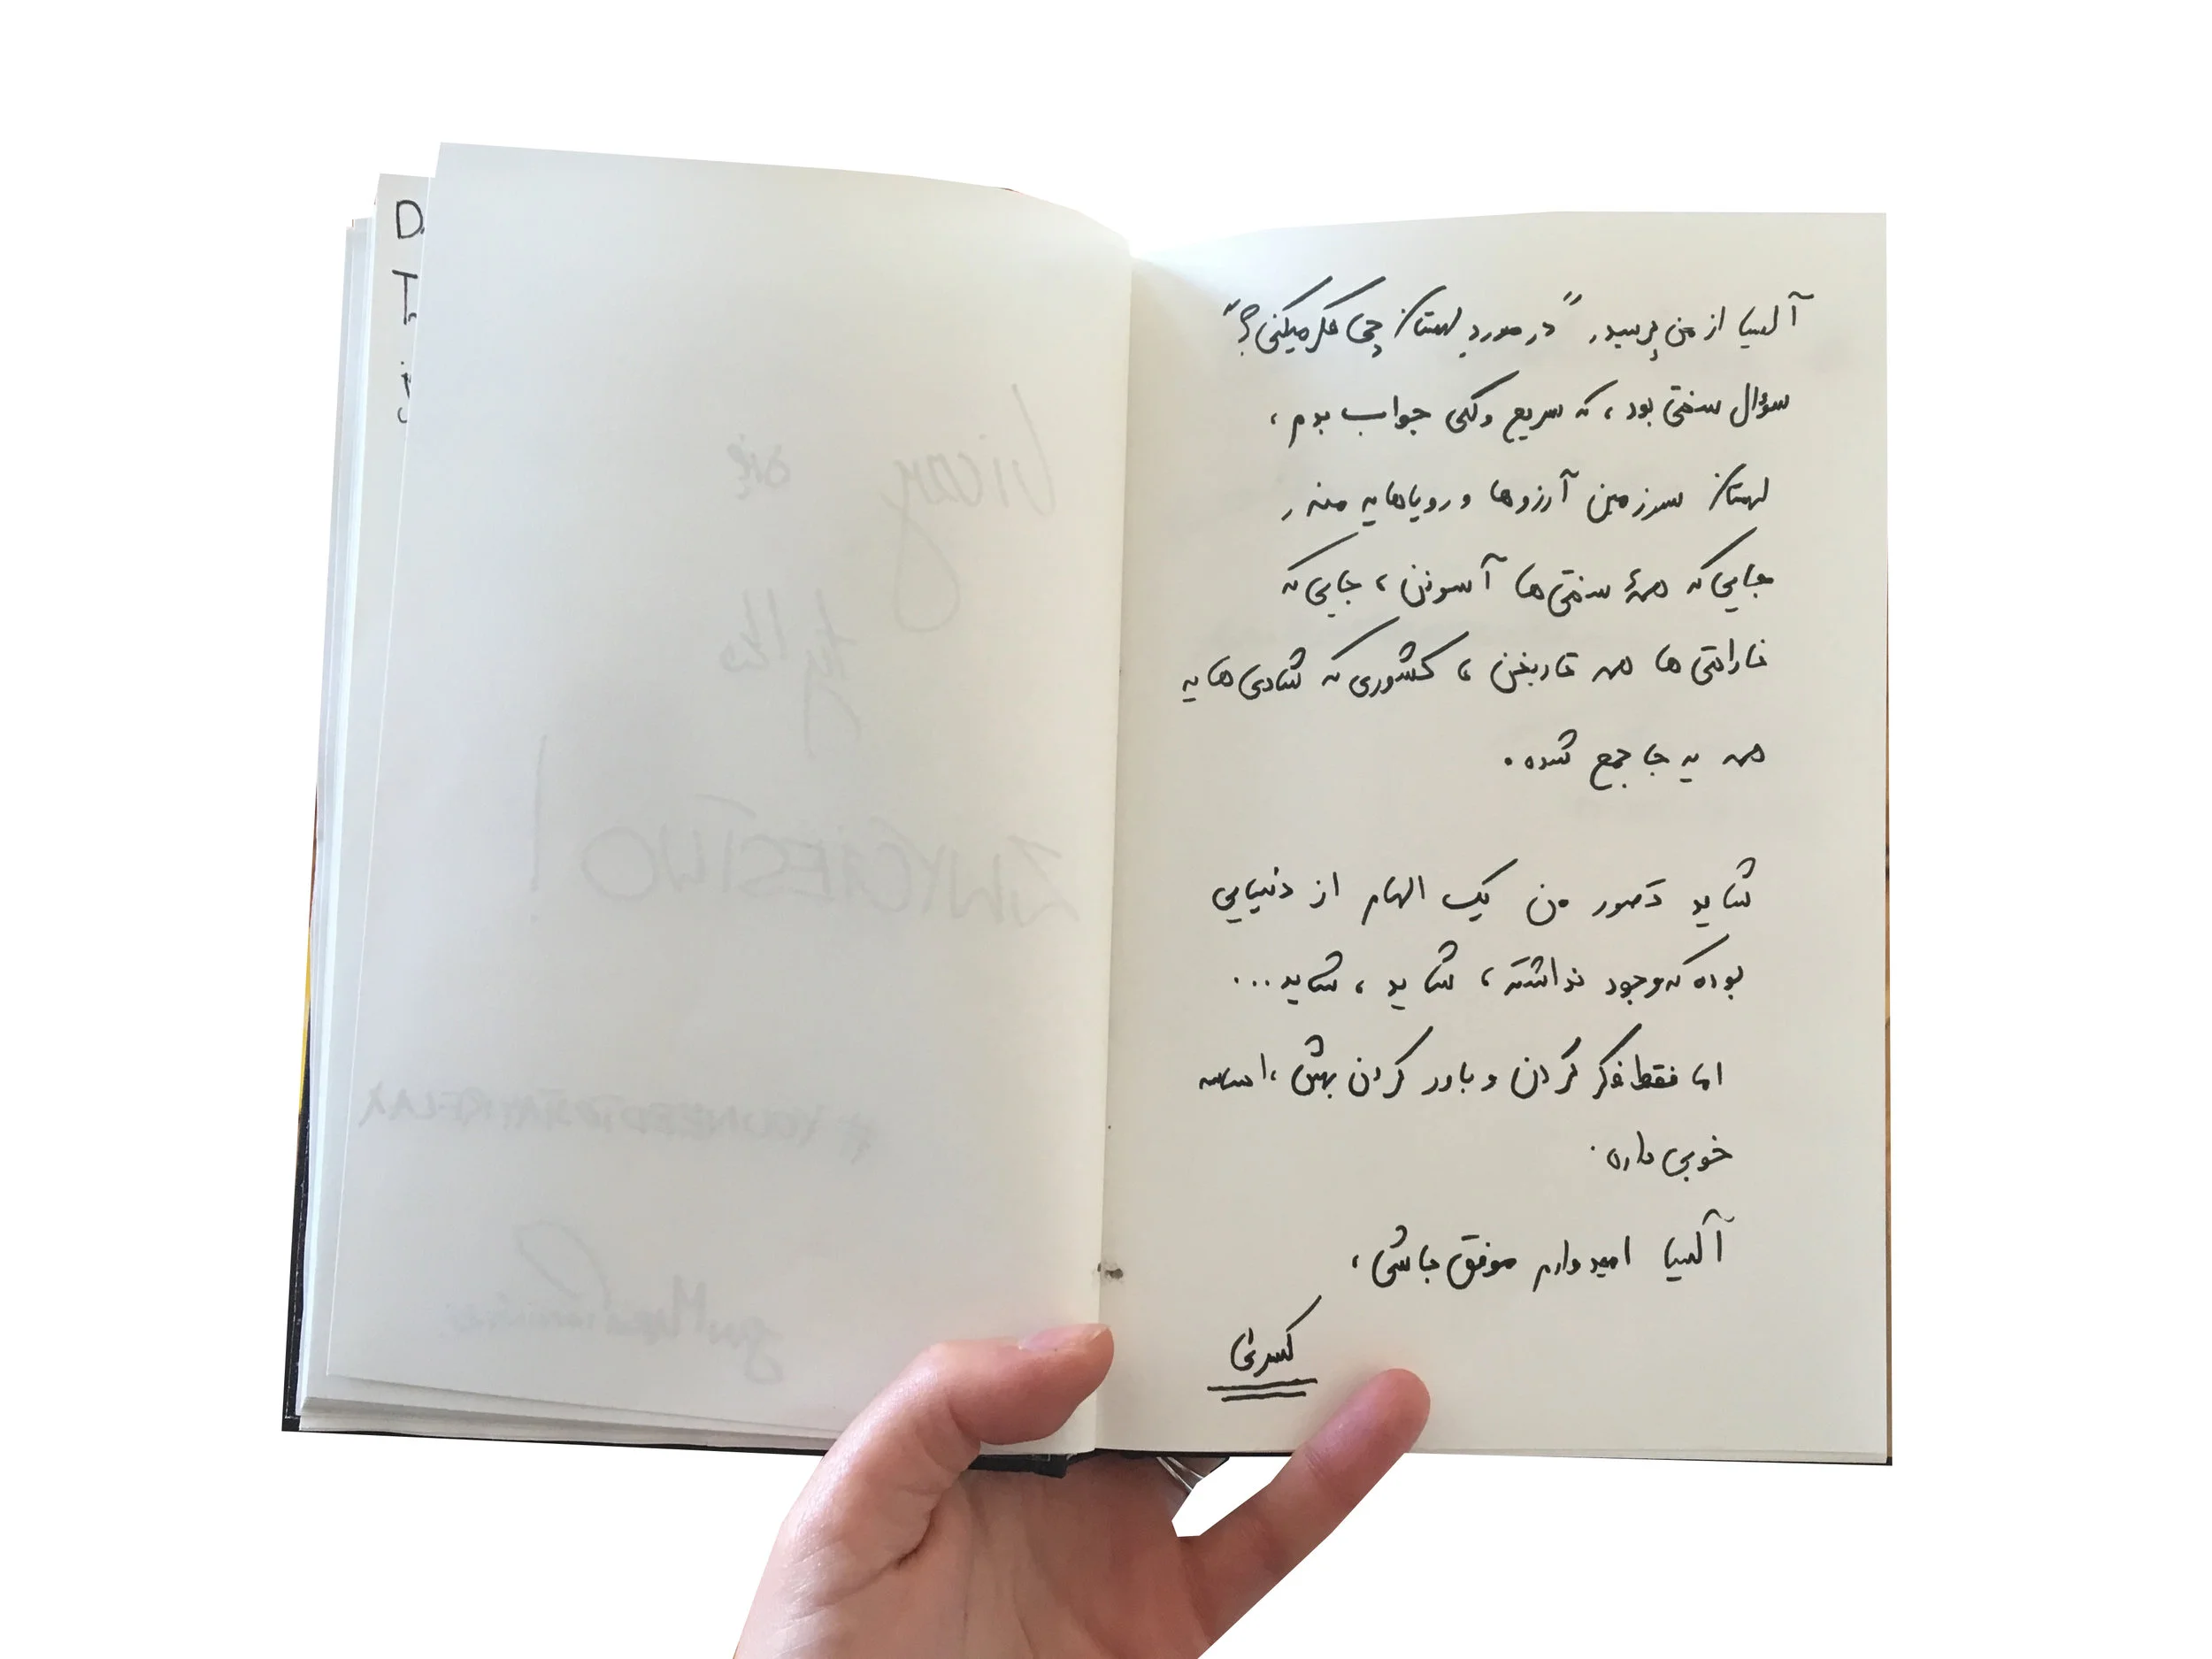 D
T
آلسیا از من پرسید، "در مورد لهستان چی فکر میکنی؟"
سؤال سختی بود، که سریع و کلی جواب بدم،
لهستان سرزمین آرزوها و رویاهایه منه،
جایی که همهٔ سختی‌ها آسونن، جایی که
ناراحتی ها همه تاریخن، کشوری که شادی هایه
همه یه جا جمع شده.
شاید تصور من یک الهام از دنیایی
بوده که وجود نداشته، شاید، شاید...
اما فقط فکر کردن و باور کردن بهش، احساسه
خوبی داره.
آلسیا امیدوارم موفق باشی،
کسری
Liczy się
tylko
ZWYCIĘSTWO!
#YOUNEEDTOSTAYRELAX